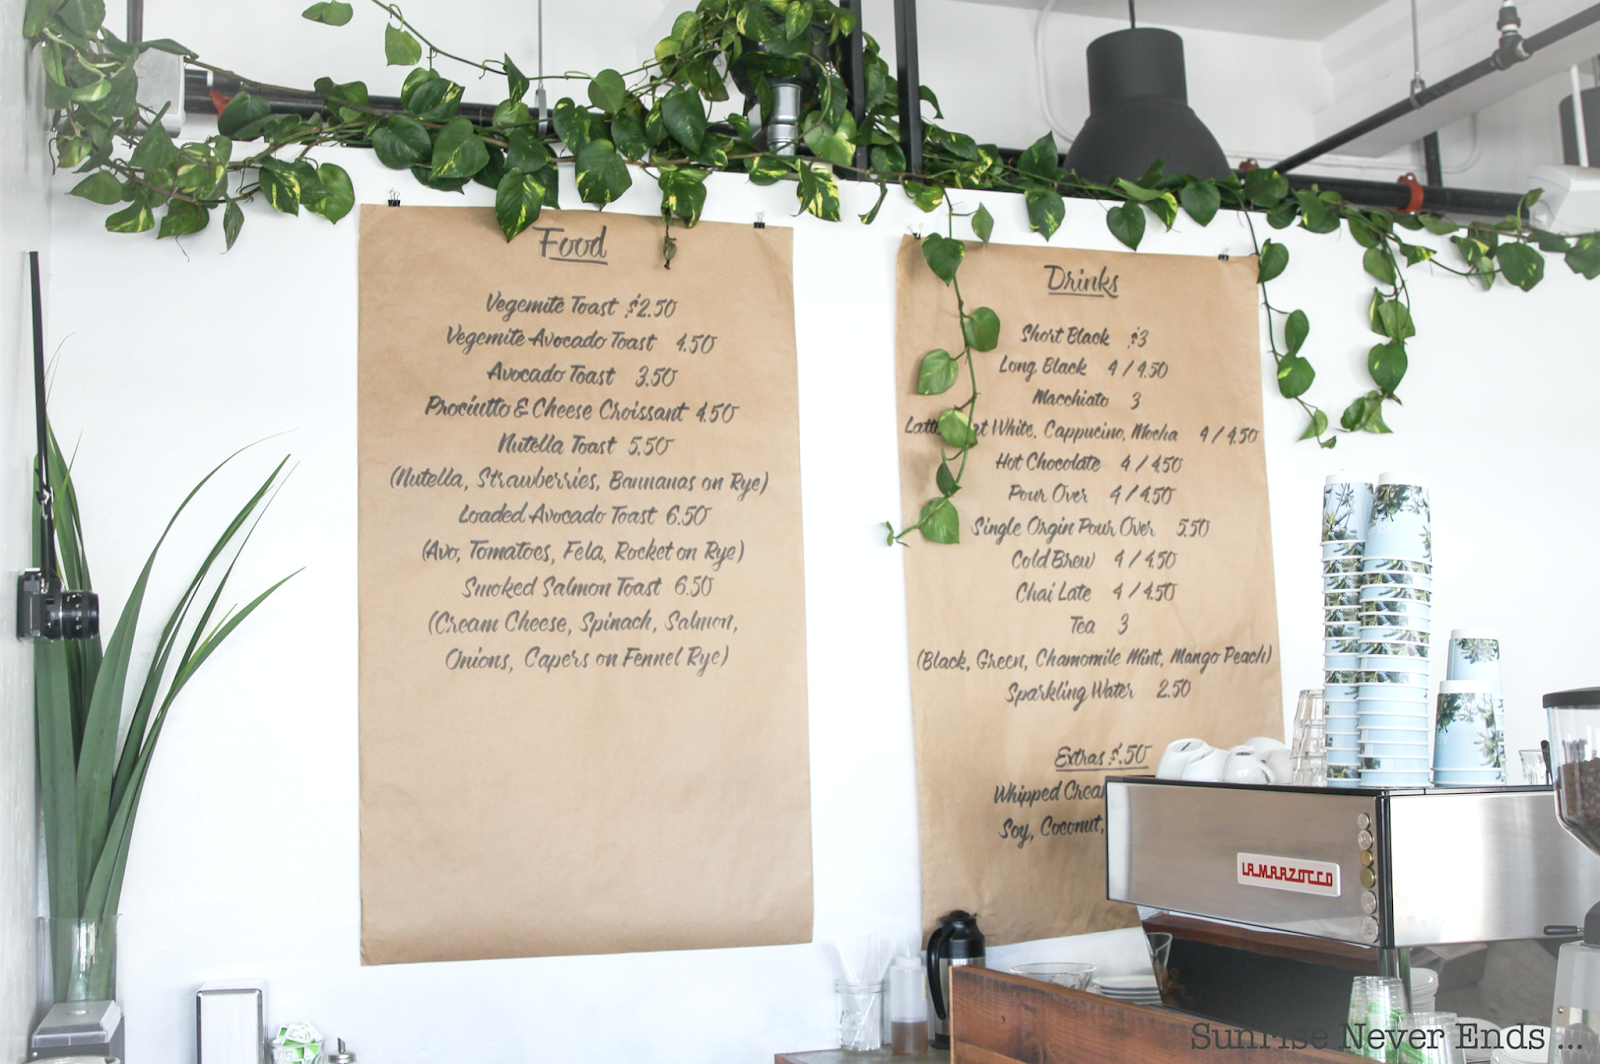 Food
Vegemite Toast $2.50
Vegemite Avocado Toast 4.50
Avocado Toast 3.50
Prociutto & Cheese Croissant 4.50
Nutella Toast 5.50
(Nutella, Strawberries, Bannanas on Rye)
Loaded Avocado Toast 6.50
(Avo, Tomatoes, Feta, Rocket on Rye)
Smoked Salmon Toast 6.50
(Cream Cheese, Spinach, Salmon,
Onions, Capers on Fennel Rye)
Drinks
Short Black $3
Long Black 4 / 4.50
Macchiato 3
White, Cappucino, Mocha 4 / 4.50
Hot Chocolate 4 / 4.50
Pour Over 4 / 4.50
Single Orgin Pour Over 5.50
Cold Brew 4 / 4.50
Chai Late 4 / 4.50
Tea 3
(Black, Green, Chamomile Mint, Mango Peach)
Sparkling Water 2.50
Extras $.50
Whipped
Soy, Coconut,
LA MARZOCCO
Sunrise Never Ends ...